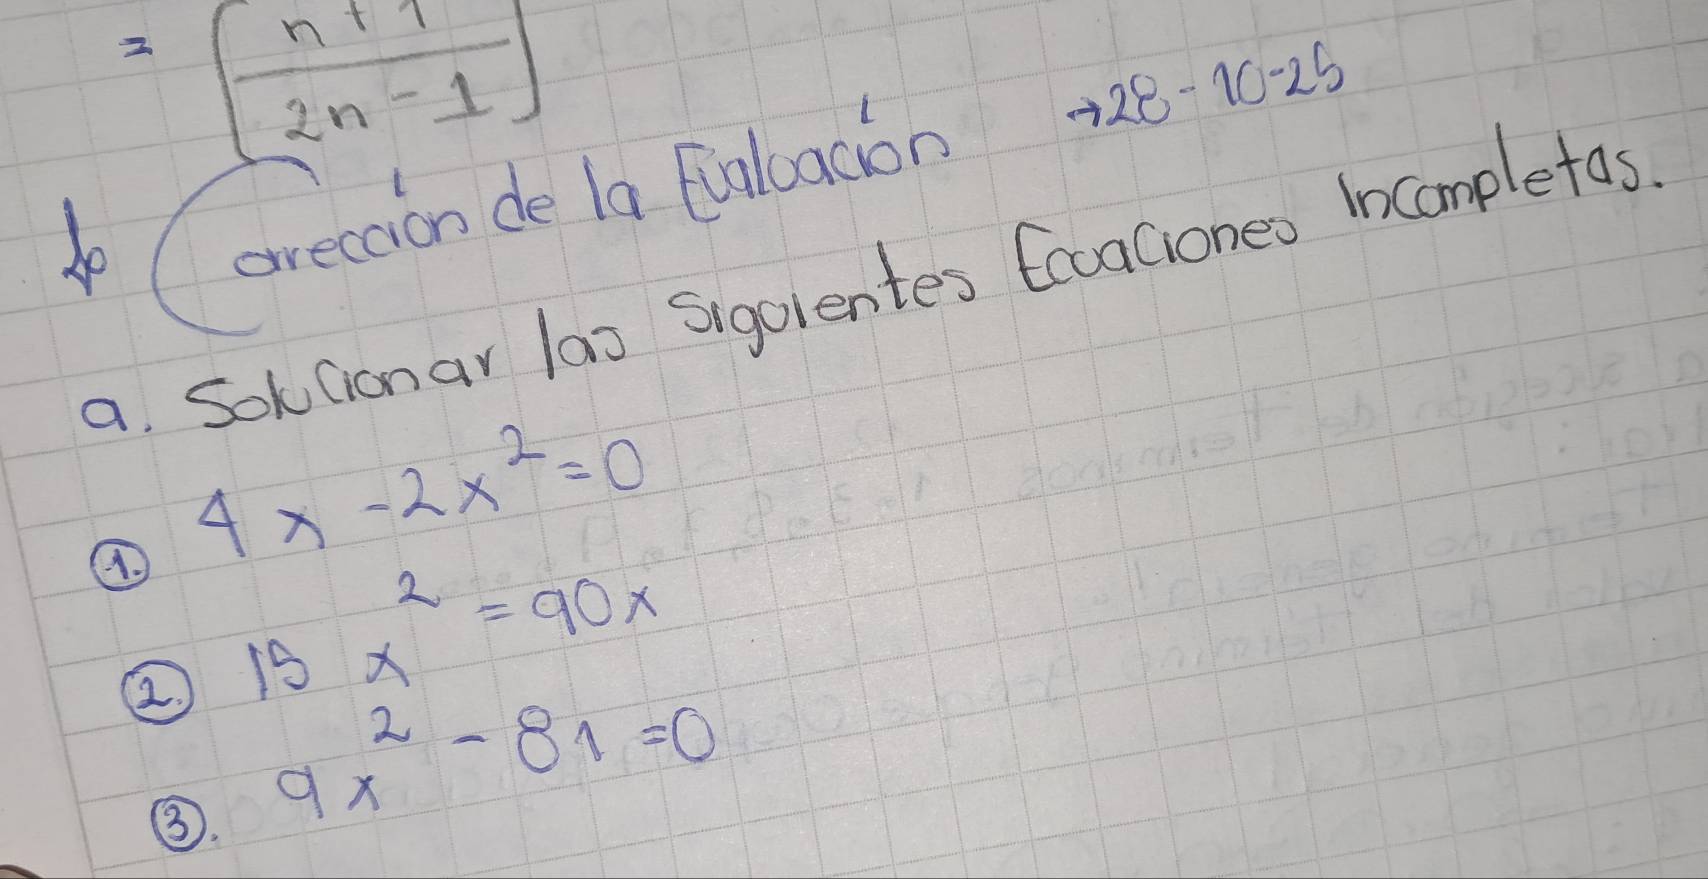 = [n + 1 / 2n - 1]
→28-10-25
Corrección de la Evaloación
a. Solucionar las siguientes Ecuaciones Incompletas.
①. 4x - 2x² = 0
②. 15x² = 90x
③. 9x² - 81 = 0